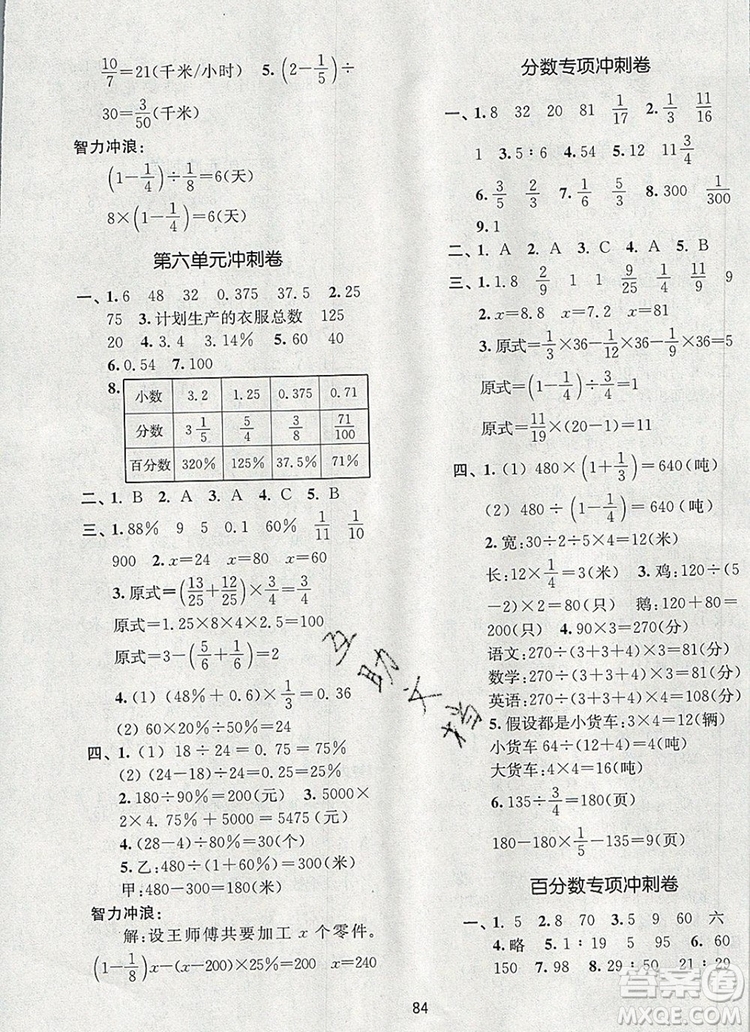 10/7=21(千米/小时) 5.(2-1/5)÷
30=3/50(千米)
智力冲浪:
(1-1/4)÷1/8=6(天)
8×(1-1/4)=6(天)
第六单元冲刺卷
一、1.6 48 32 0.375 37.5 2.25
75 3.计划生产的衣服总数 125
20 4.3.4 3.14% 5.60 40
6.0.54 7.100
8.
小数 3.2 1.25 0.375 0.71
分数 3 1/5 5/4 3/8 71/100
百分数 320% 125% 37.5% 71%
二、1.B 2.A 3.A 4.B
三、1.88% 9 5 0.1 60% 1/11 1/10
900 2.x=24 x=80 x=60
3.原式=(13/25+12/25)×3/4=3/4
原式=1.25×8×4×2.5=100
原式=3-(5/6+1/6)=2
4.(1)(48%+60%)×1/3=0.36
(2)60×20%÷50%=24
四、1.(1)18÷24=0.75=75%
(2)(24-18)÷24=0.25=25%
2.180÷90%=200(元) 3.5000×
2×4.75%+5000=5475(元)
4.(28-4)÷80%=30(个)
5.乙:480÷(1+60%)=300(米)
甲:480-300=180(米)
智力冲浪:
解:设王师傅共要加工x个零件。
(1-1/8)x-(x-200)×1/2=180 x=240
分数专项冲刺卷
一、1.8 32 20 81 1/17 2.1/4 11/16
1 3.5∶6 4.54 5.12 11 3/4
6.3/5 2/5 7.1/6 1/5 8.300 1/300
9.1
二、1.A 2.A 3.C 4.A 5.B
三、1.1.8 2/9 1/2 5/6 1/9 9/11 9
2.x=8.8 x=12 x=9
3.原式=1/3×36-1/6×36-1/36×36=5
原式=(1-1/4)÷1/4=3
原式=11/19×(20-1)=11
四、1.(1)480×(1+1/3)=640(吨)
(2)480÷(1-1/4)=640(吨)
2.宽:30÷2÷5×4=12(米)
长:12×1/4=3(米) 3.鸡:120÷(5
-2)×2=80(只) 鹅:120+80=
200(只) 4.90×3=270(分)
语文:270÷(3+3+4)×3=81(分)
数学:270÷(3+3+4)×3=81(分)
英语:270÷(3+3+4)×4=108(分)
5.假设都是小货车:3×4=12(辆)
小货车64÷(12+4)=4(吨)
大货车:4×4=16(吨)
6.135÷3/4=180(页)
180-180×1/5-135=9(页)
百分数专项冲刺卷
一、1.5 2.8 70 3.5 9 60 六
4.略 5.1∶19 5 95 6.60
150 7.98 8.29∶50 9.29 58
互助文档
84
答案圈
MXQE.COM